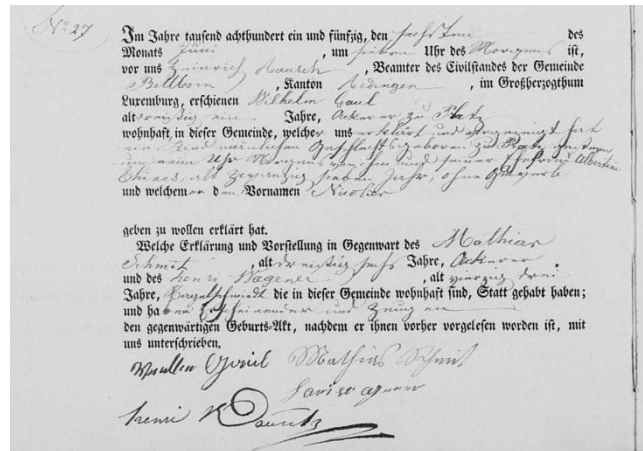 No 27
Im Jahre tausend achthundert ein und fünfzig, den sechsten des
Monats Juni, um sieben Uhr des Morgens ist,
vor uns Heinrich, Beamter des Civilstandes der Gemeinde
Bettborn, Kanton Redingen, im Großherzogthum
Luxemburg, erschienen Wilhelm Gaul
alt dreißig ein Jahre, Ackerer zu Platz
wohnhaft in dieser Gemeinde, welcher uns erklärt und vorgezeigt hat
ein Kind männlichen Geschlechts geboren zu Platz, gestern
um neun Uhr Morgens, von ihm und seiner Ehefrau
alt zwanzig sieben Jahr, ohne Gewerbe
und welchem er den Vornamen Nicolas
geben zu wollen erklärt hat.
Welche Erklärung und Vorstellung in Gegenwart des Mathias
Schmit, alt dreißig sechs Jahre, Ackerer
und des Henri Wagener, alt vierzig drei
Jahre, die in dieser Gemeinde wohnhaft sind, Statt gehabt haben;
und haben Erscheinender und Zeugen
den gegenwärtigen Geburts-Akt, nachdem er ihnen vorher vorgelesen worden ist, mit
uns unterschrieben.
Mathias Schmit
henri